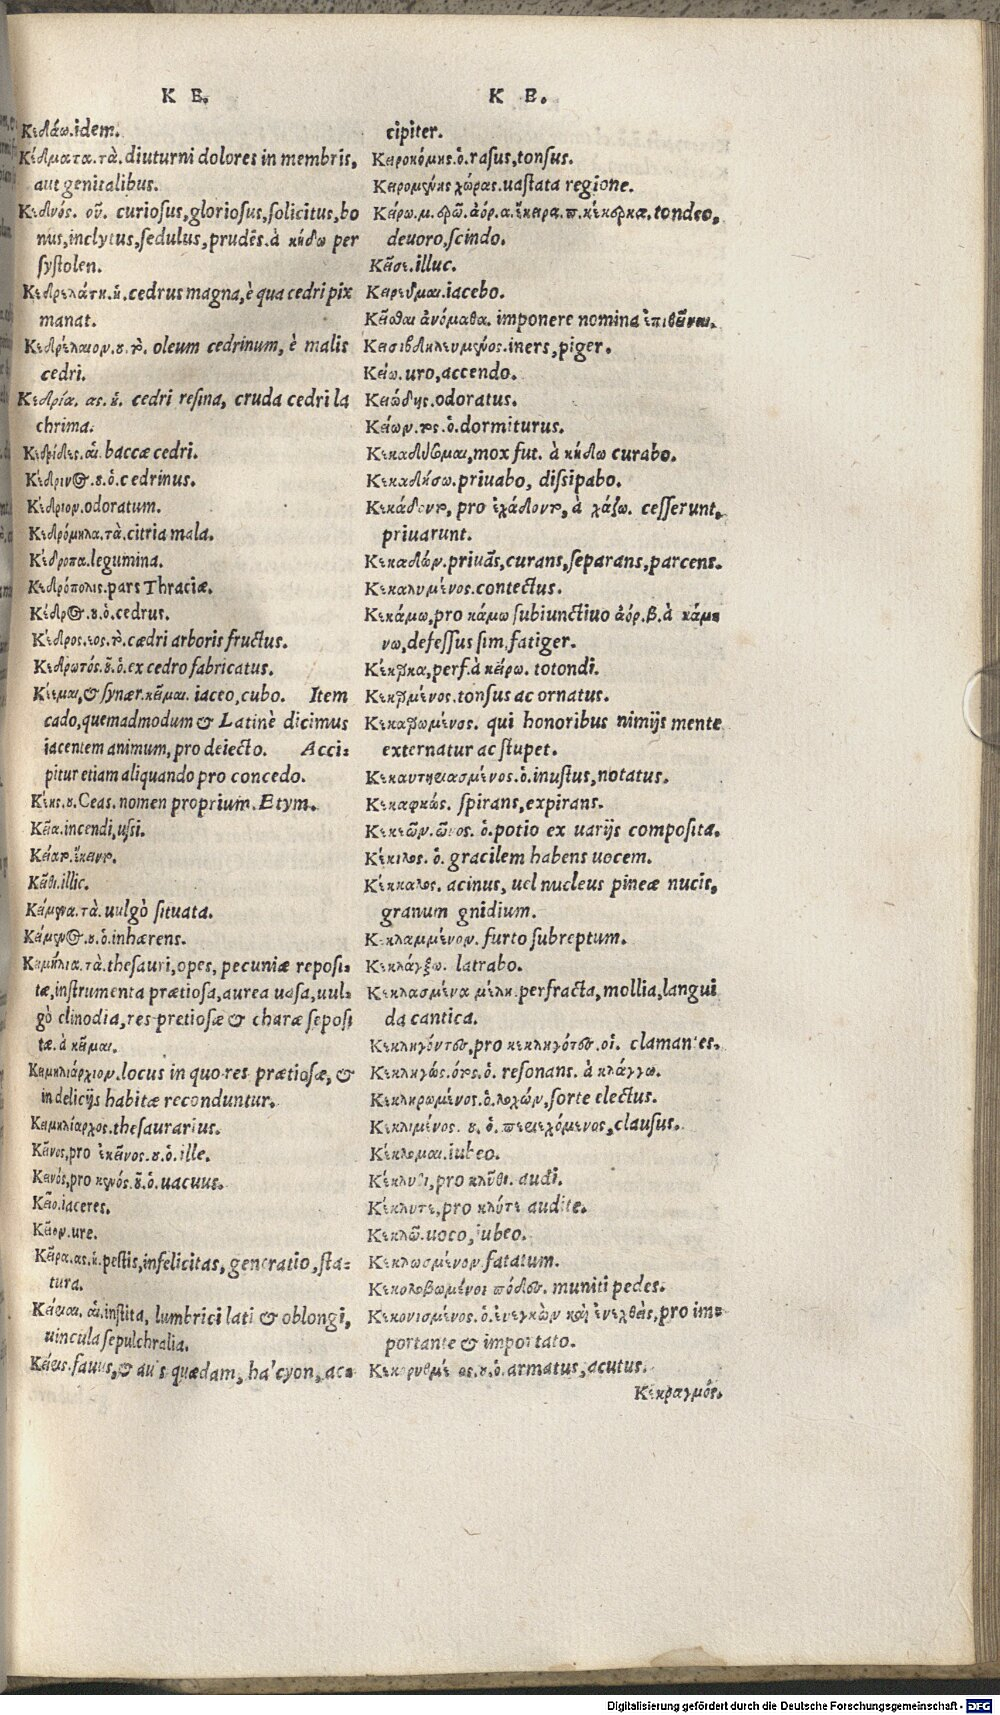 K E.
Κεδάω.idem.
Κέδματα.τὰ.diuturni dolores in membris,
aut genitalibus.
Κεδνός. οῦ. curiosus,gloriosus,solicitus,bo
nus,inclytus,sedulus,prudẽs.à κήδω per
systolen.
Κεδρελάτη.ἡ.cedrus magna,è qua cedri pix
manat.
Κεδρέλαιον.ου.τὸ. oleum cedrinum, è malis
cedri.
Κεδρία. ας.ἡ. cedri resina, cruda cedri la
chrima.
Κεδρίδες.αἱ.baccæ cedri.
Κέδρινος.ου.ὁ.cedrinus.
Κέδριον.odoratum.
Κεδρόμηλα.τὰ.citria mala.
Κέδροπα.legumina.
Κεδρόπολις.pars Thraciæ.
Κέδρος.ου.ὁ.cedrus.
Κέδρος.εος.τὸ.cædri arboris fructus.
Κεδρωτός.οῦ.ὁ.ex cedro fabricatus.
Κέεμαι,& synær.κεῖμαι. iaceo,cubo. Item
cado,quemadmodum & Latinè dicimus
iacentem animum,pro deiecto. Acci-
pitur etiam aliquando pro concedo.
Κέης.ου.Ceas.nomen proprium.Etym.
Κεῖα.incendi,ussi.
Κείαν.ἔκειαν.
Κεῖθι.illic.
Κείμενα.τὰ.uulgò situata.
Κείμενος.ου.ὁ.inhærens.
Κειμήλια.τὰ.thesauri,opes, pecuniæ reposi-
tæ,instrumenta prætiosa,aurea uasa,uul-
gò clinodia,res pretiosæ & charæ seposi
tæ.à κεῖμαι.
Κειμηλιάρχιον.locus in quo res prætiosæ, &
in delicijs habitæ reconduntur.
Κειμηλίαρχος.thesaurarius.
Κεῖνος,pro ἐκεῖνος.ου.ὁ.ille.
Κεινός,pro κενός.οῦ.ὁ.uacuus.
Κεῖο.iaceres.
Κεῖον.ure.
Κεῖρα.ας.ἡ.pestis,infelicitas, generatio,sta-
tura.
Κείριαι. αἱ.instita, lumbrici lati & oblongi,
uincula sepulchralia.
Κείρις.fauus,& auis quædam, halcyon, ac-
K E.
cipiter.
Κειροκόμης.ὁ.rasus,tonsus.
Κειρομένης χώρας.uastata regione.
Κείρω.μ.ερῶ.ἀόρ.α.ἔκειρα.π.κέκαρκα.tondeo,
deuoro,scindo.
Κεῖσε.illuc.
Κεισεῦμαι.iacebo.
Κεῖσθαι ὀνόμαθα. imponere nomina ἐπιθεῖναι.
Κεισιβδηλευμένος.iners,piger.
Κείω.uro,accendo.
Κειώδης.odoratus.
Κείων.τος.ὁ.dormiturus.
Κεκαδύσομαι,mox fut. à κήδω curabo.
Κεκαδήσω.priuabo, dissipabo.
Κεκάδοντο, pro ἐχάδοντο, à χάζω. cesserunt,
priuarunt.
Κεκαδών.priuãs,curans,separans,parcens.
Κεκαλυμένος.contectus.
Κεκάμω,pro κάμω subiunctiuo ἀόρ.β.à κάμ-
νω,defessus sim,fatiger.
Κέκαρκα,perf.à κείρω. totondi.
Κεκαρμένος.tonsus ac ornatus.
Κεκαρωμένος. qui honoribus nimijs mente
externatur ac stupet.
Κεκαυτηριασμένος.ὁ.inustus,notatus.
Κεκαφηώς. spirans,expirans.
Κεκεῶν.ῶνος. ὁ.potio ex uarijs composita.
Κέκιλος. ὁ. gracilem habens uocem.
Κέκκαλος. acinus, uel nucleus pineæ nucis,
granum gnidium.
Κεκλαμμένον. furto subreptum.
Κεκλάγξω. latrabo.
Κεκλασμένα μέλη.perfracta,mollia,langui
da cantica.
Κεκληγόντες,pro κεκληγότες.οἱ. clamantes.
Κεκληγώς.ότος.ὁ. resonans. à κλάγγω.
Κεκληρωμένος.ὁ.λοχών,sorte electus.
Κεκλιμένος. ου. ὁ. περιεχόμενος,clausus.
Κέκλομαι.iubeo.
Κέκλυθι,pro κλῦθι. audi.
Κέκλυτε,pro κλύτε audite.
Κεκλῶ.uoco,iubeo.
Κεκλωσμένον.fatatum.
Κεκολοβωμένοι πόδες. muniti pedes.
Κεκονισμένος.ὁ.ἐνεγκὼν καὶ ἐνεχθεὶς,pro im-
portante & importato.
Κεκορυθμένος.ου.ὁ.armatus,acutus.
Κεκραγμός.
Digitalisierung gefördert durch die Deutsche Forschungsgemeinschaft - DFG